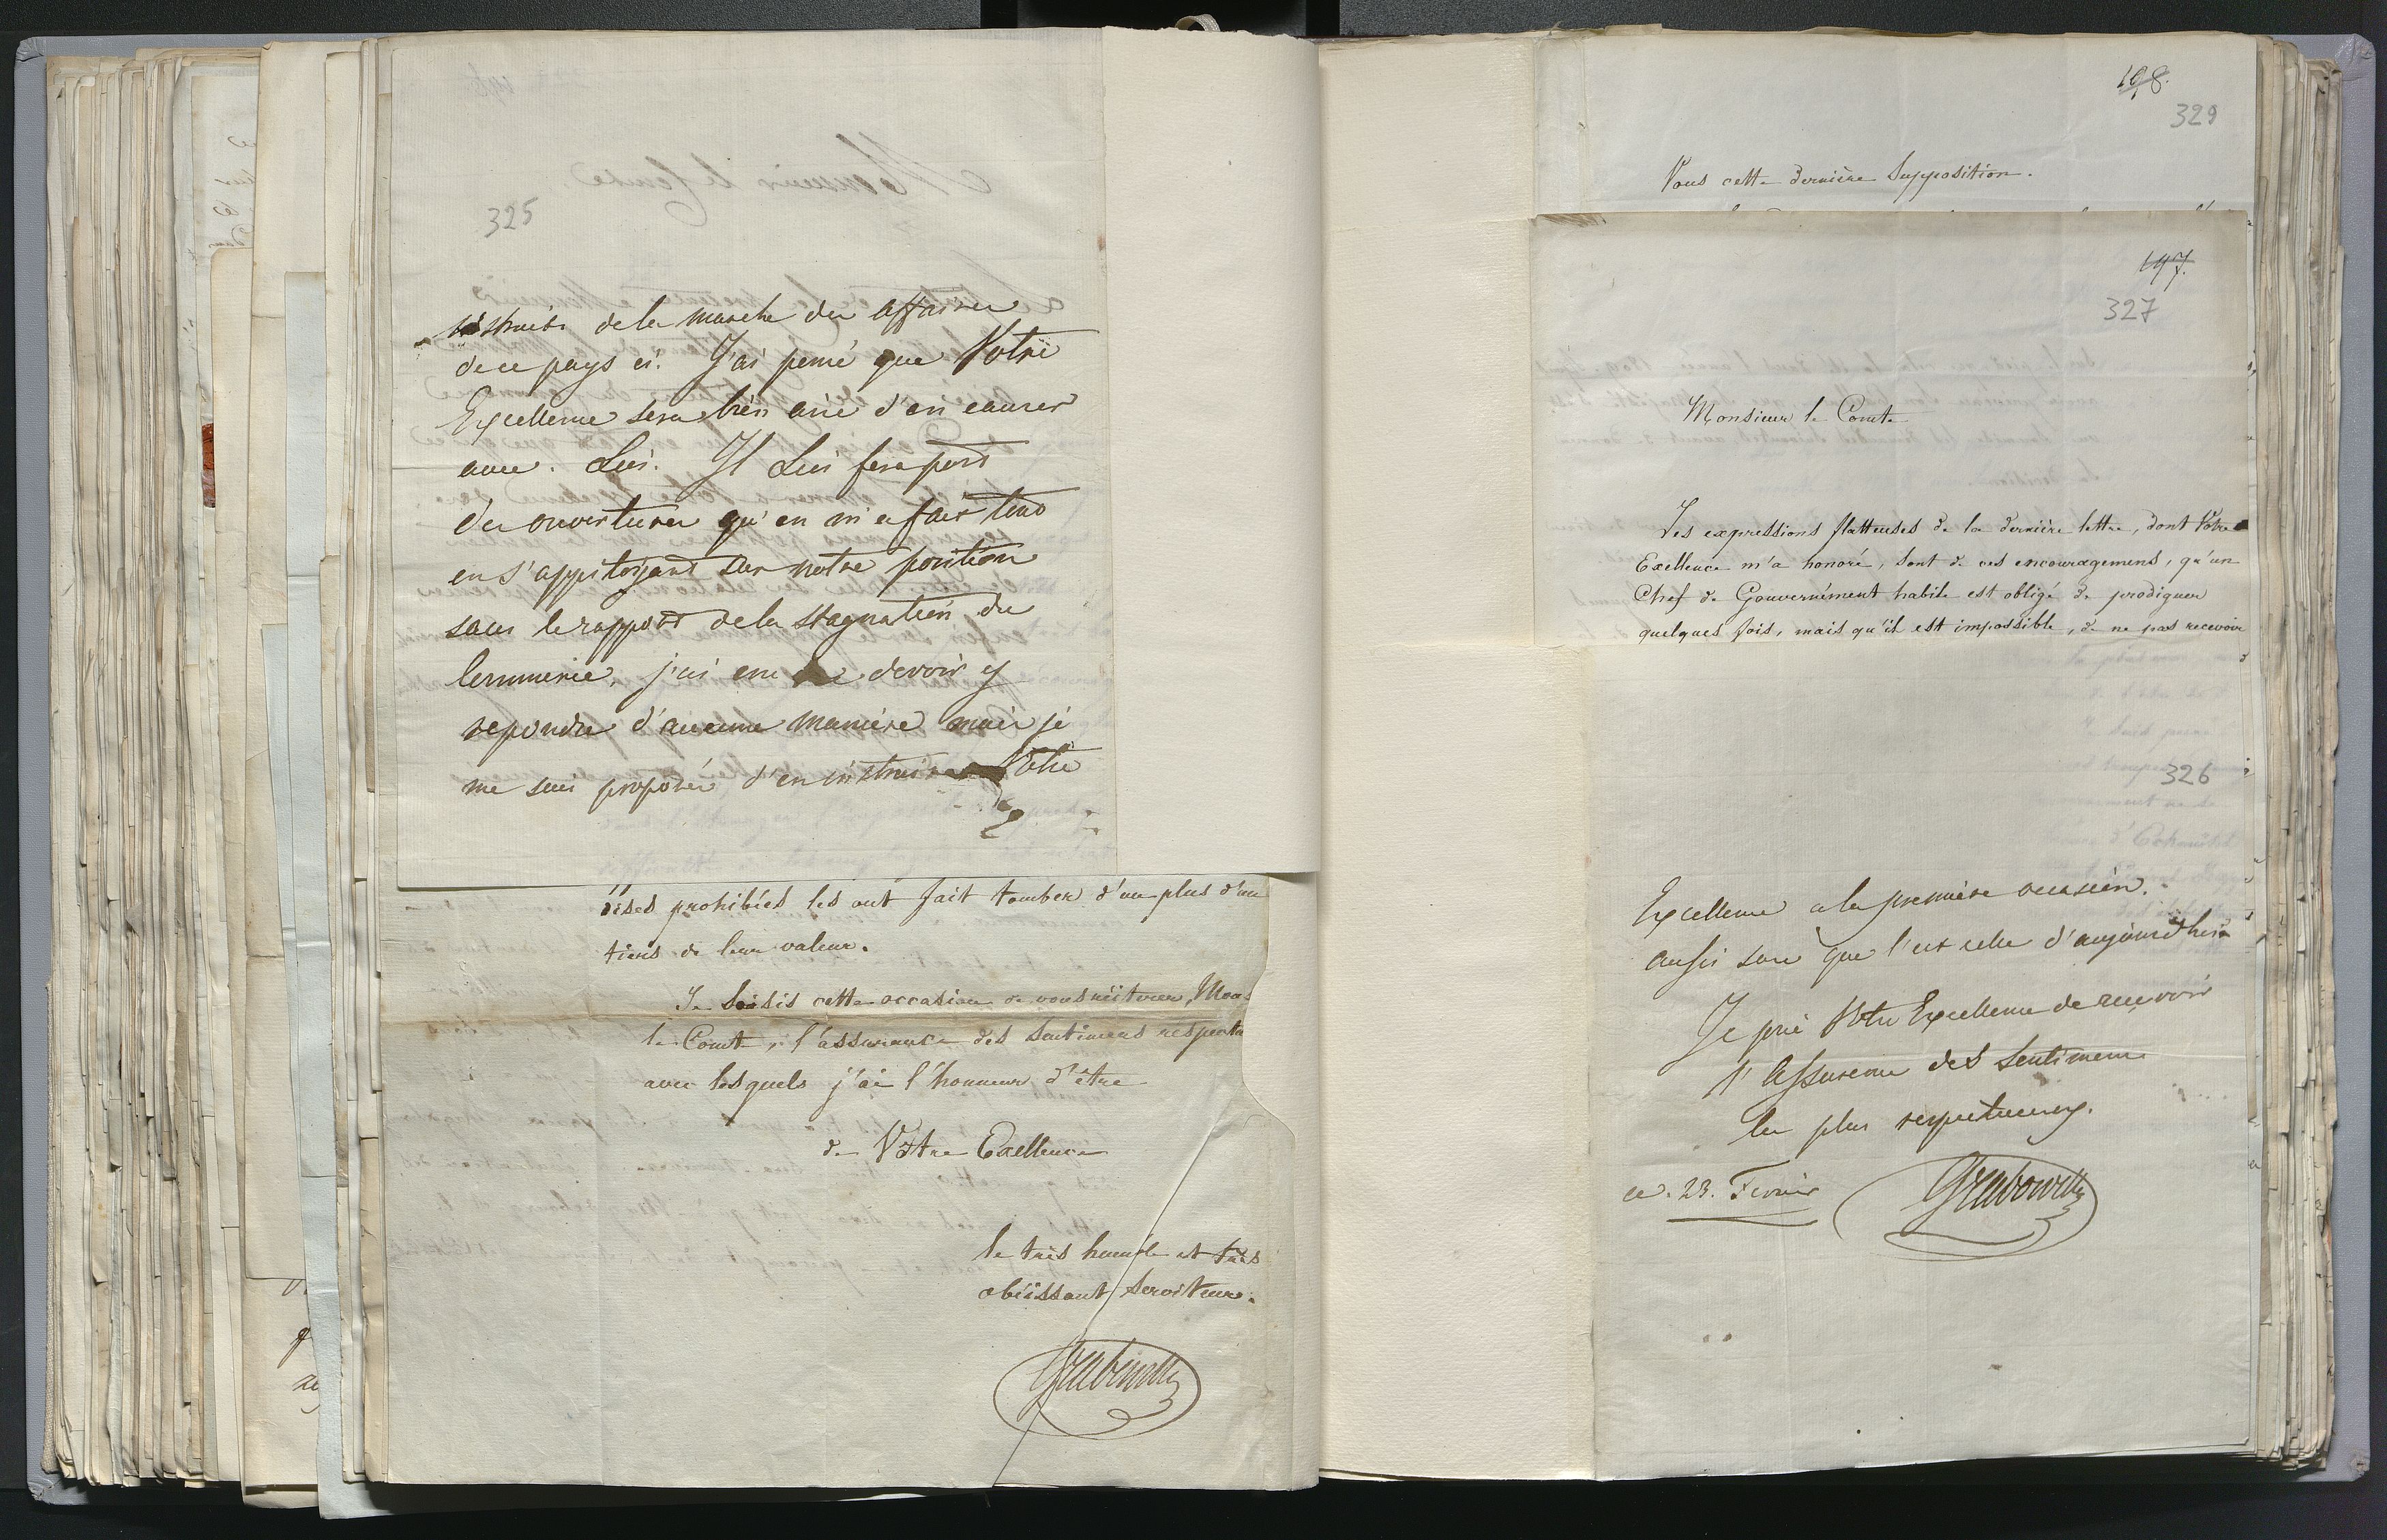 325
instruits de la marche des affaires
de ce pays ci. J'ai pensé que Votre
Excellence sera bien aisé d'en causer
avec Lui. Il Lui fera part
des ouvertures qu'on m'a fait tout
en s'appitoyant sur notre position
sous le rapport de la stagnation du
j'ai cru devoir y
repondre d'aucune manière mais je
me suis proposé d'en instruire Votre
dises prohibées les ont fait tomber d'un plus d'un
tiers de leur valeur.
Je saisis cette occasion de vous réiterer, Mons
le Comte, l'assurance des sentimens respectu
avec lesquels j'ai l'honneur d'être
de Votre Exellence
le très humble et très
obéissant serviteur.
Grabowsky
198.
329
Vous cette dernière supposition.
197.
327
Monsieur le Comte
Les expressions flatteuses de la dernière lettre, dont Votre
Exellence m'a honoré, sont de ces encouragemens, qu'un
Chef de Gouvernément habile est obligé de prodiguer
quelques fois, mais qu'il est impossible, de ne pas recevoir
326
Excellence a la première occasion.
aussi sure que l'est celle d'aujourdhui
Je prie Votre Excellence de recevoir
l'assurence des sentimens
les plus respectueux.
ce. 23. Fevrier
Grabowsky